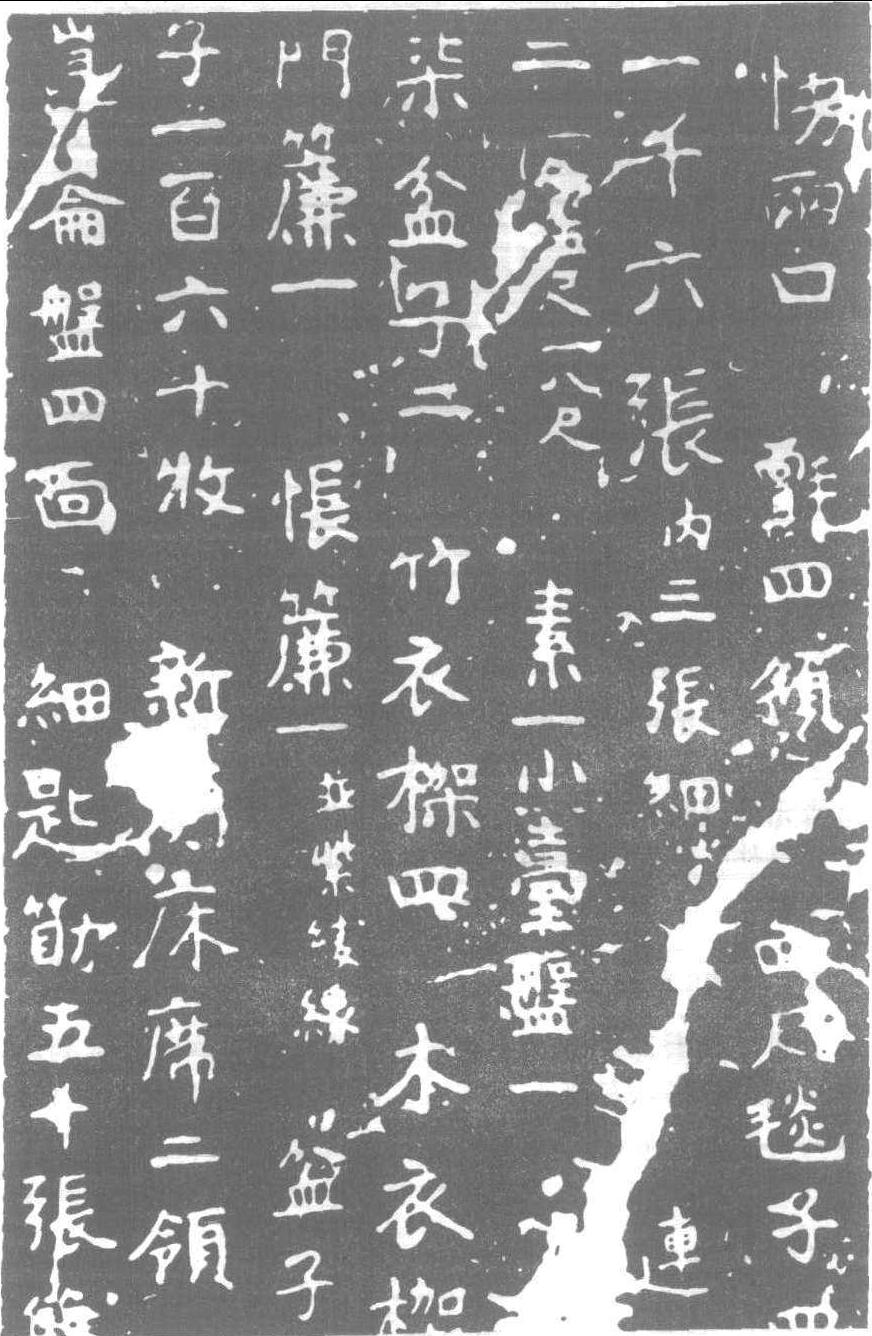 兩口 氈四領 尺毯子四
一千六張 内三張細 連
二 尺一八尺 素一小臺盤一
柒盆子二 竹衣榤四 木衣枷
門簾一 帳簾一 並紫綾緣 子
子一百六十枚 新床席二領
崑崙盤四面 細匙筯五十張